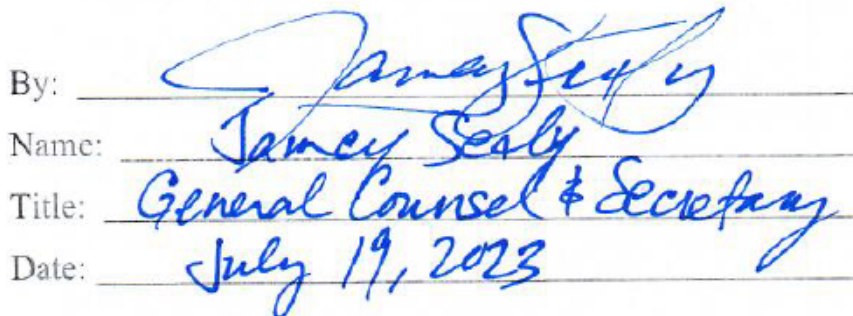 By: Jamey Seely
Name: Jamey Seely
Title: General Counsel & Secretary
Date: July 19, 2023